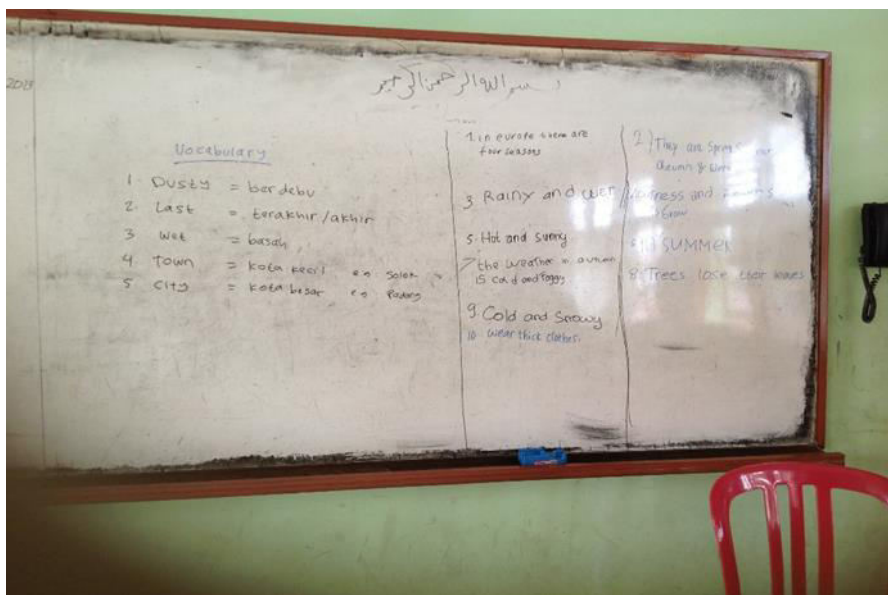 2019
بسم الله الرحمن الرحيم
Vocabulary
1. Dusty = berdebu
2. Last = terakhir/akhir
3 Wet = basah
4 Town = kota kecil e.g Solok
5 City = kota besar e.g Padang
1. in europe there are
four seasons
3. Rainy and wet
5. Hot and sunny
7 the weather in autumn
is cold and foggy
9 Cold and Snowy
10 wear thick clothes.
2.) They are Spring
& 
and
Grow
SUMMER
8. Trees lose